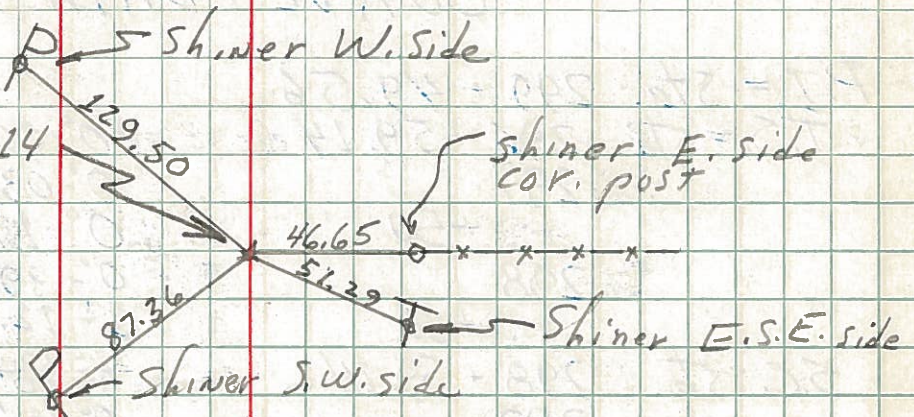 P
Shiner W. Side
129.50
14
Shiner E. side
cor. post
46.65
51.29
T
87.36
Shiner E.S.E. side
P
Shiner S.W. side